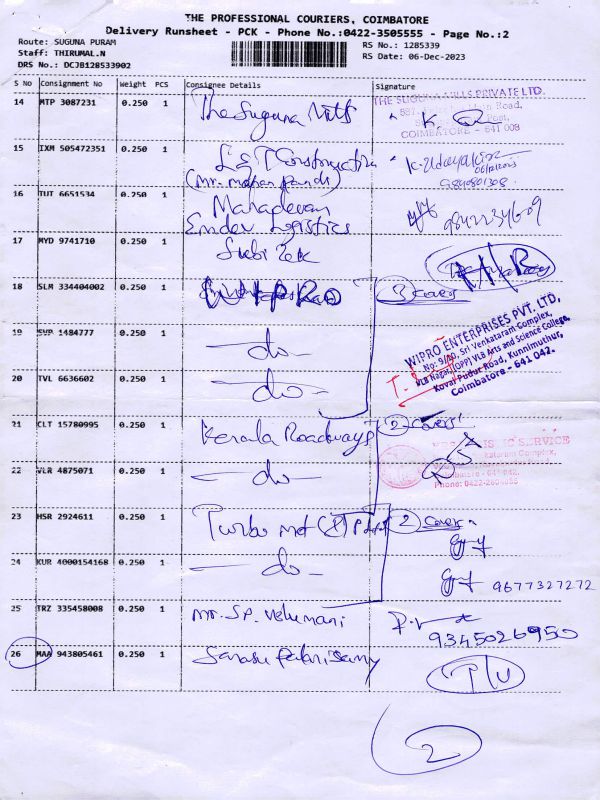 THE PROFESSIONAL COURIERS, COIMBATORE
Delivery Runsheet - PCK - Phone No.:0422-3505555 - Page No.:2
Route: SUGUNA PURAM
Staff: THIRUMAL.N
DRS No.: DCJB128533902
RS No.: 1285339
RS Date: 06-Dec-2023
S No Consignment No Weight PCS Consignee Details Signature
14 MTP 3087231 0.250 1 The Suguna Mills
THE SUGUNA MILLS PRIVATE LTD.
Road,
Post,
COIMBATORE - 641 008
15 IXM 505472351 0.250 1 L&T Construction
(Mr. Mohan Pandi)
9840801308
16 TUT 6651534 0.250 1 Mahadevan
Emdev Logistics
9842234609
17 MYD 9741710 0.250 1 Subi Tek
18 SLM 334404002 0.250 1 WIPRO 3 Cover
WIPRO ENTERPRISES PVT. LTD,
No: 9/10, Sri Venkataram Complex,
VLB Nagar, (OPP) VLB Arts and Science College,
Kovai Pudur Road, Kunnimuthur,
Coimbatore - 641 042.
19 SVP 1484777 0.250 1 - do -
20 TVL 6636602 0.250 1 - do -
21 CLT 15780995 0.250 1 Kerala Roadways 2 Covers
SERVICE
Complex,
Coimbatore - 641 042.
22 VLR 4875071 0.250 1 - do -
23 HSR 2924611 0.250 1 Turbo Met (P) 2 Cover
24 KUR 4000154168 0.250 1 - do -
9677327272
25 TRZ 335458008 0.250 1 Mr. S.P. Velumani
9345026950
26 MAA 943805461 0.250 1 Sarasu Palanisamy
2